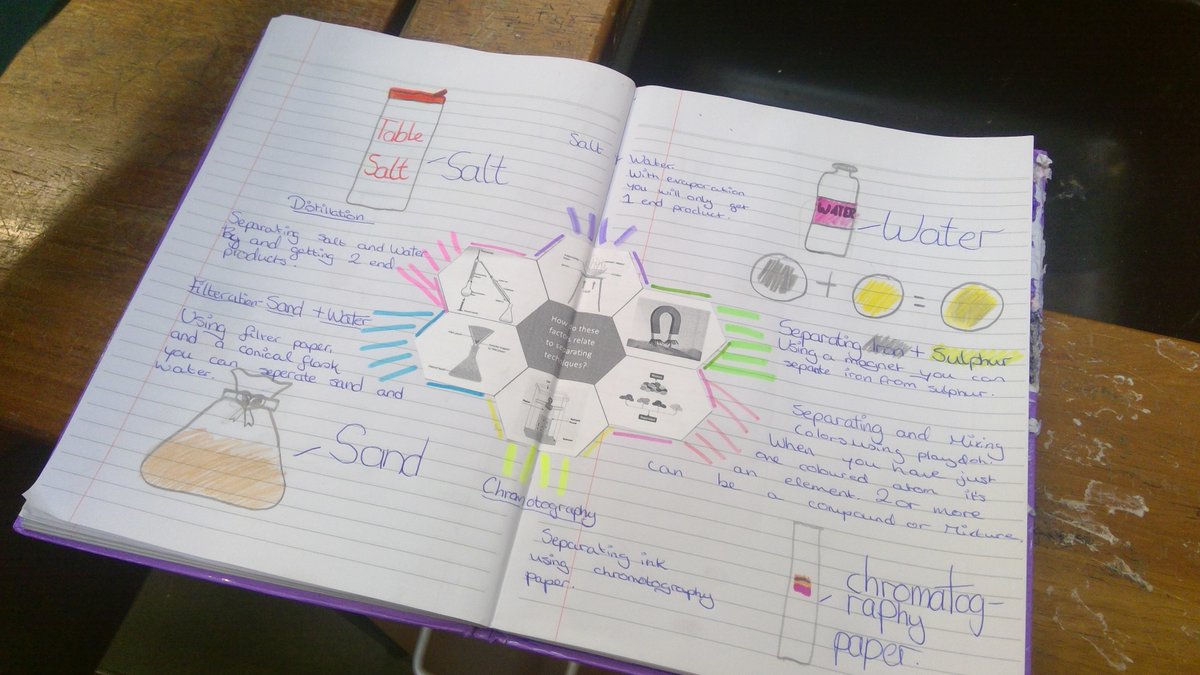 Table
Salt
Salt
Distillation
Separating Salt and Water
By and getting 2 end
products.
Filteration - Sand + Water
Using filter paper,
and a conical flask
you can seperate sand and
water.
Sand
How do these
factors relate
to separating
techniques?
Chromotography
Separating ink
using chromotography
paper.
Salt + Water
With evaporation
you will only get
1 end product
WATER
Water
+ =
Separating Iron + Sulphur
Using a magnet you can
separate iron from sulphur.
Separating and Mixing
Colors using playdoh:
When you have just
one coloured atom it's
an element. 2 or more
can be a compound or Mixture.
chromatog-
raphy
paper.